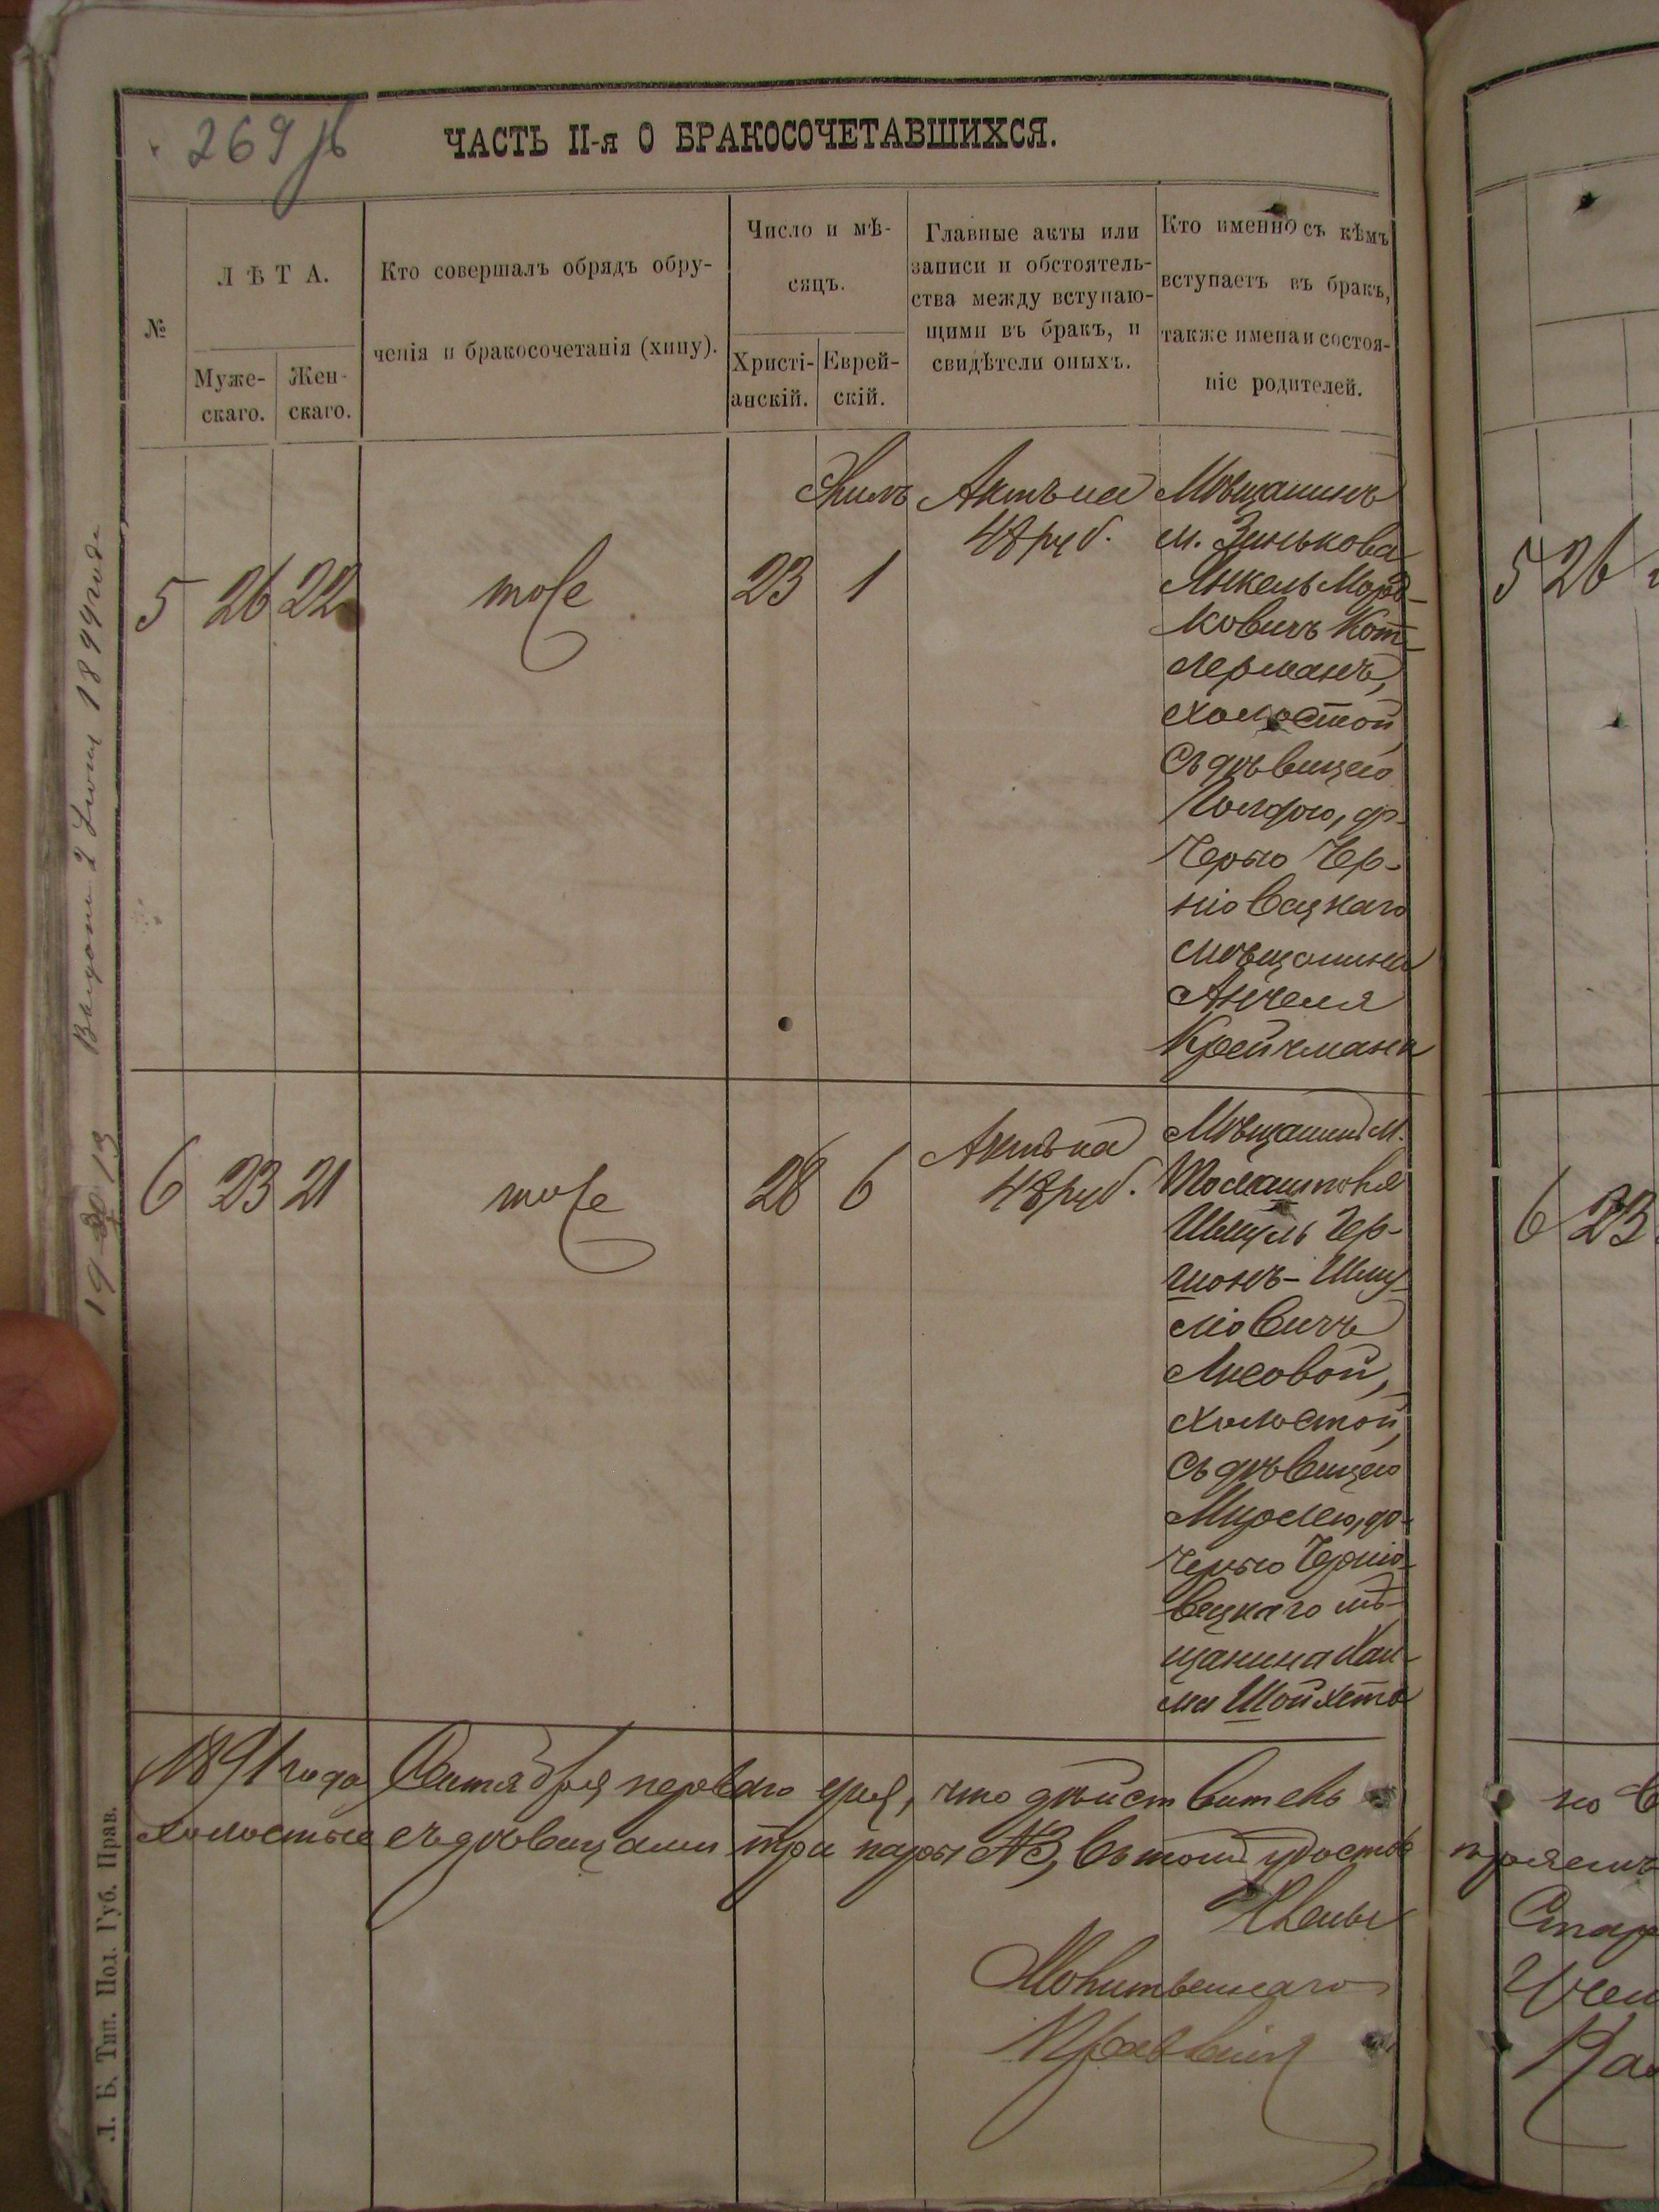 269 об
ЧАСТЬ II-я О БРАКОСОЧЕТАВШИХСЯ.
№
ЛѢТА.
Муже-
скаго.
Жен-
скаго.
Кто совершалъ обрядъ обру-
ченія и бракосочетанія (хипу).
Число и мѣ-
сяцъ.
Христі-
анскій.
Еврей-
скій.
Главные акты или
записи и обстоятель-
ства между вступаю-
щими въ бракъ, и
свидѣтели оныхъ.
Кто именно съ кѣмъ
вступаетъ въ бракъ,
также имена и состоя-
ніе родителей.
5
26
22
тоже
23
1
Актъ на
48 руб.
Мѣщанинъ
м. Зинькова
Янкель Морд-
ковичъ Кот-
лерманъ,
холостой
съ дѣвицею
до-
черью Чер-
ніовецкаго
мѣщанина
Анчеля
Крейчмана
6
23
21
тоже
28
6
Актъ на
48 руб.
Мѣщанинъ м.
Томашполя
Шмуль Гер-
шонъ-Шму-
ліовичъ
Лисовой,
холостой
съ дѣвицею
до-
черью Черніо-
вецкаго мѣ-
щанина Хаи-
ма Шойхета
1891 года Сентября перваго дня, что дѣйствитель
холостые съ дѣвицами три пары №3, въ томъ удостов
Члены
Молитвеннаго
Правленія
Л. Б. Тип. Под. Губ. Прав.
1899 года
5
26
6
23
но
ѣряемъ